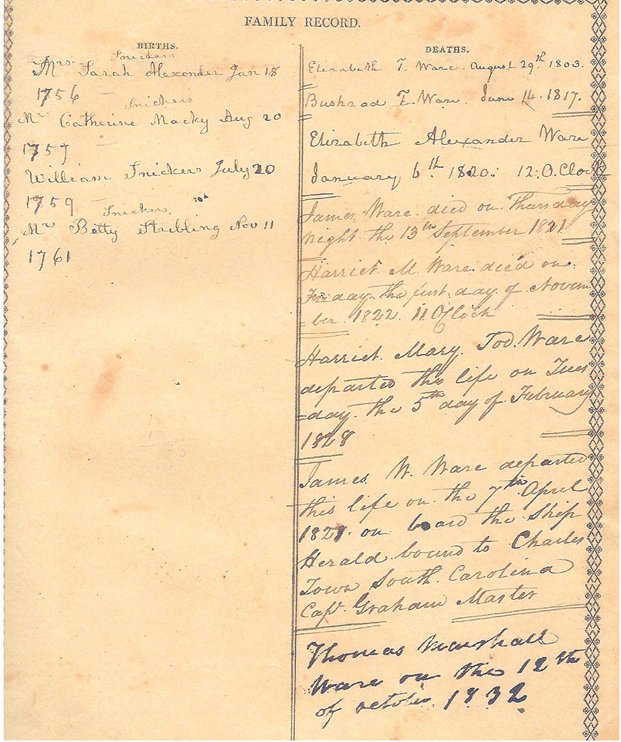 FAMILY RECORD.
BIRTHS.
Snickers
Mrs. Sarah Alexender Jan 18
1756
Snickers
Mrs Catherine Macky Aug 20
1757
William Snickers July 20
1759
Snickers
Mrs Betty Stribling Nov 11
1761
DEATHS.
Elizabeth T. Ware. August 29th 1803.
Bushrod T. Ware. June 14. 1817.
Elizabeth Alexander Ware
January 6th 1820. 12.O.Clock
James Ware. died on Thursday
night the 13th September 1821
Harriet M Ware. died on
Friday the first day of Novem
=ber 1822. 11 OClock
Harriet. Mary. Tod. Ware
departed this life on Tues
=day the 5th day of February
1828
James. W. Ware departed
this life on the 7th April
1828. on board the Ship
Herald bound to Charles
Town South. Carolina
Capt. Graham Master
Thomas Marshall
Ware on the 12th
of octobr. 1832